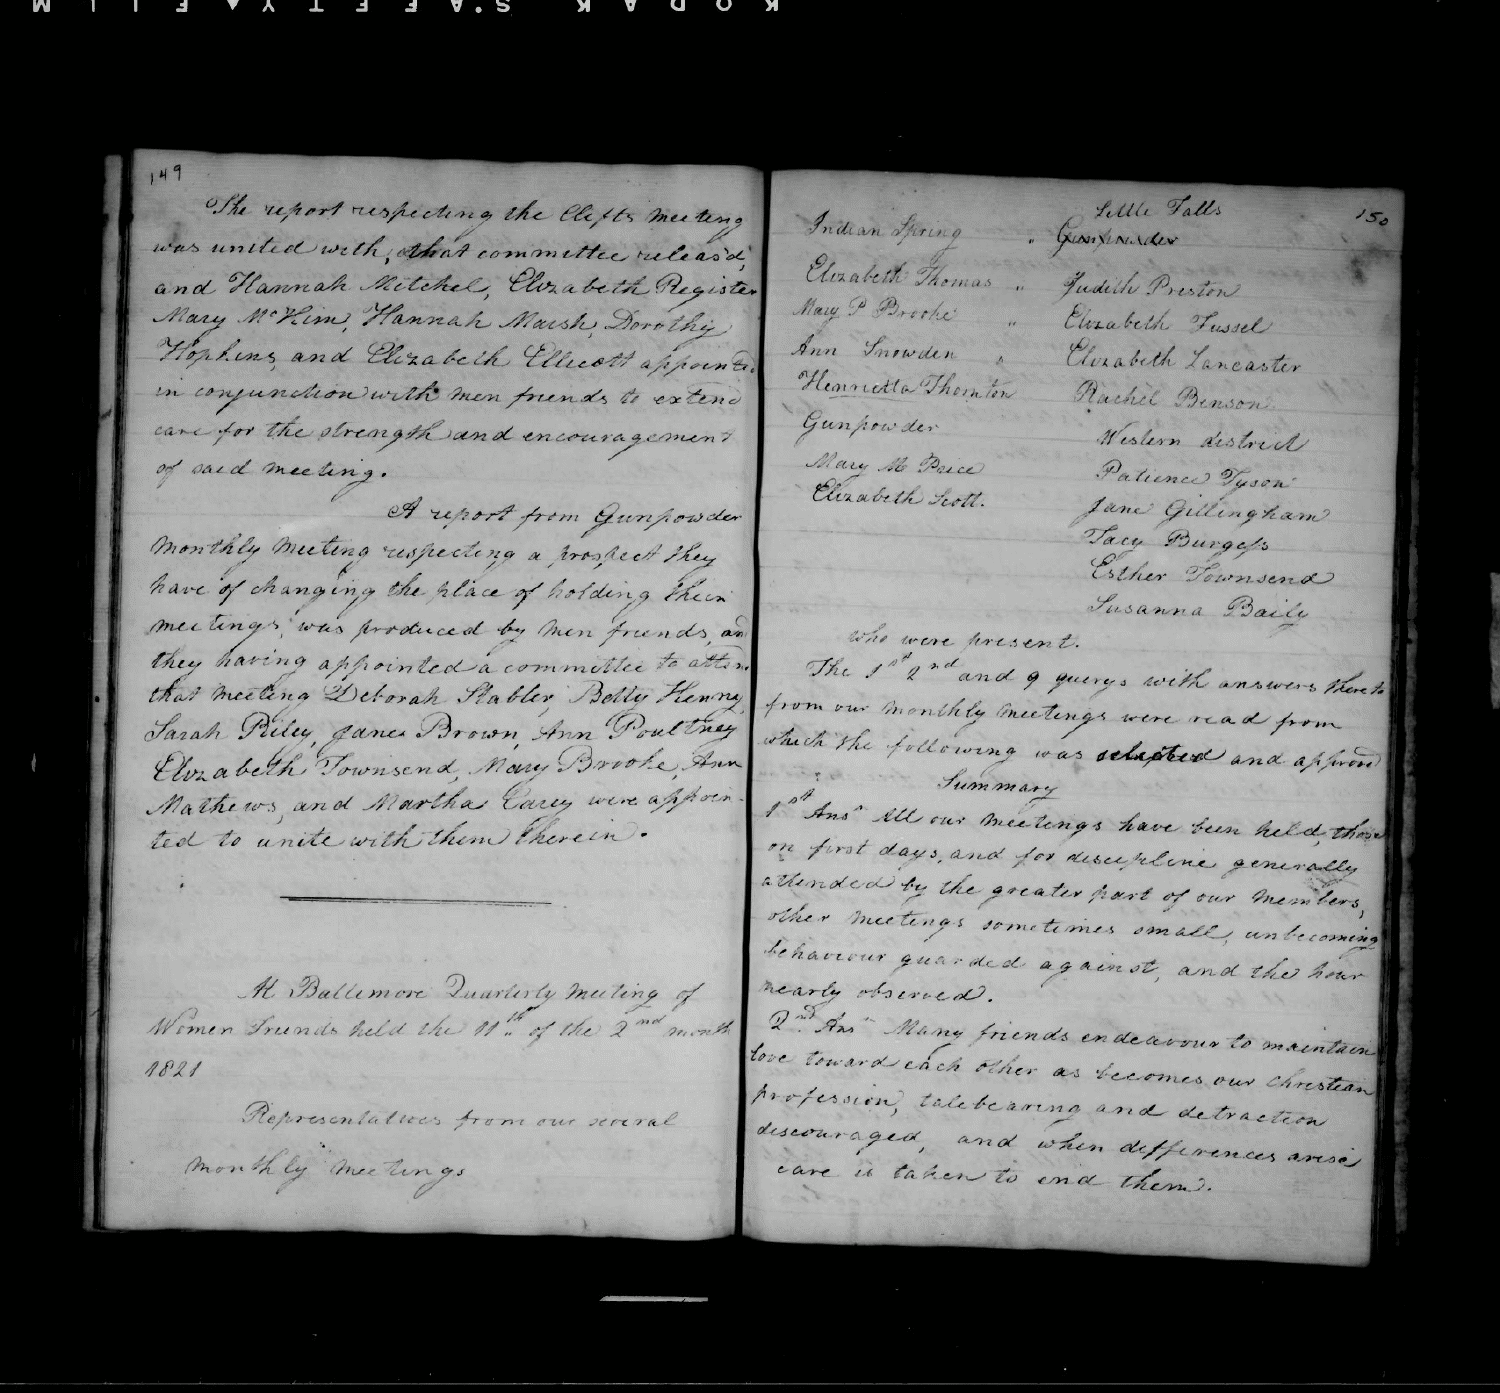 149
The report respecting the Clifts meeting
was united with, that committee releas'd,
and Hannah Mitchel, Elizabeth Register
Mary McKim, Hannah Marsh, Dorothy
Hopkins, and Elizabeth Ellicott appointed
in conjunction with men friends to extend
care for the strength and encouragement
of said meeting.
A report from Gunpowder
monthly meeting respecting a prospect they
have of changing the place of holding their
meetings, was produced by men friends, and
they having appointed a committee to attend
that meeting Deborah Stabler, Betty Henny,
Sarah Riley, Janes Brown, Ann Poultney
Elizabeth Townsend, Mary Brooke, Ann
Mathews, and Martha Carey were appoin-
ted to unite with them therein.
At Baltimore Quarterly meeting of
Women Friends held the 11th of the 2nd month
1821
Representatives from our several
monthly meetings
150
Indian Spring
Elizabeth Thomas "
Mary P Brooke "
Ann Snowden "
Henrietta Thornton
Gunpowder
Mary M Price
Elizabeth Scott.
Little Falls
" Gunpowder
Judith Preston
Elizabeth Fussel
Elizabeth Lancaster
Rachel Benson
Western district
Patience Tyson
Jane Gillingham
Tacy Burgess
Esther Townsend
Susanna Baily
who were present.
The 1st 2nd and 9 querys with answers thereto
from our monthly meetings were read from
which the following was and approved
Summary
1st Ansr All our meetings have been held, those
on first days, and for discipline generally
attended by the greater part of our members,
other meetings sometimes small, unbecoming
behaviour guarded against, and the hour
nearly observed.
2nd Ansr Many friends endeavour to maintain
love toward each other as becomes our christian
profession, talebearing and detraction
discouraged, and when differences arise
care is taken to end them.
KODAK S.AFETY FILM